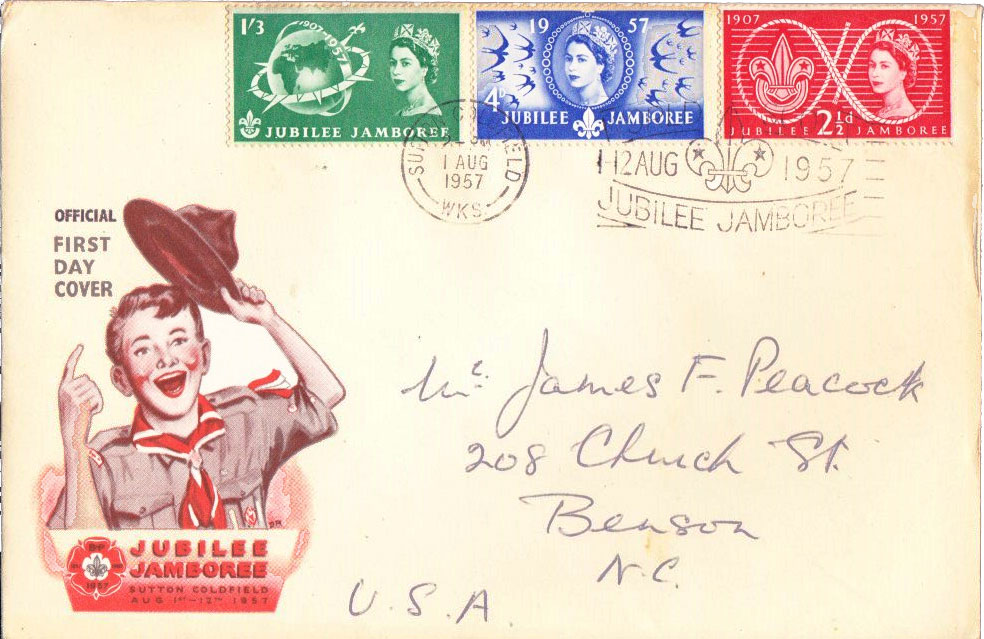 1'3
1907-1957
JUBILEE JAMBOREE
19 57
4D
JUBILEE JAMBOREE
1907 1957
JUBILEE 2½d JAMBOREE
SUTTON COLDFIELD
1 AUG
1957
WKS
1-12 AUG 1957
JUBILEE JAMBOREE
OFFICIAL
FIRST
DAY
COVER
Mr. James F. Peacock
208 Church St.
Benson
N.C.
U.S.A.
B-P
1957
JUBILEE
JAMBOREE
SUTTON COLDFIELD
AUG 1ST-12TH 1957